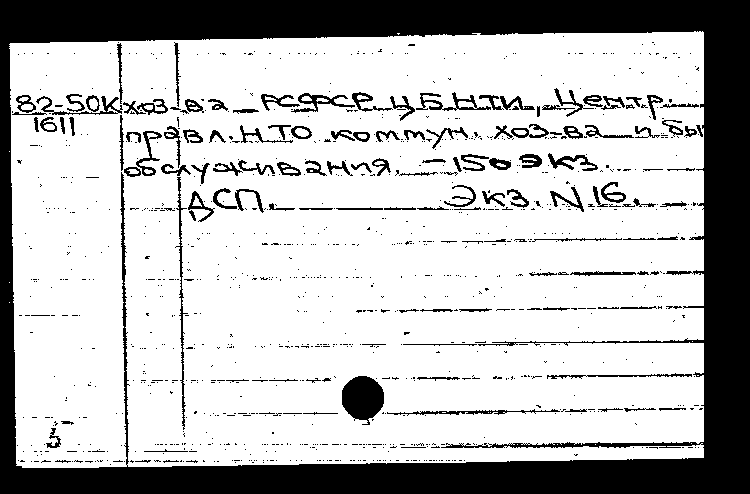 82-50К хоз-ва РСФСР ЦБНТИ, Центр.
1611 правл. НТО коммун. хоз-ва и бы
обслуживания. - 150 экз.
ДСП. Экз. N 16.
5